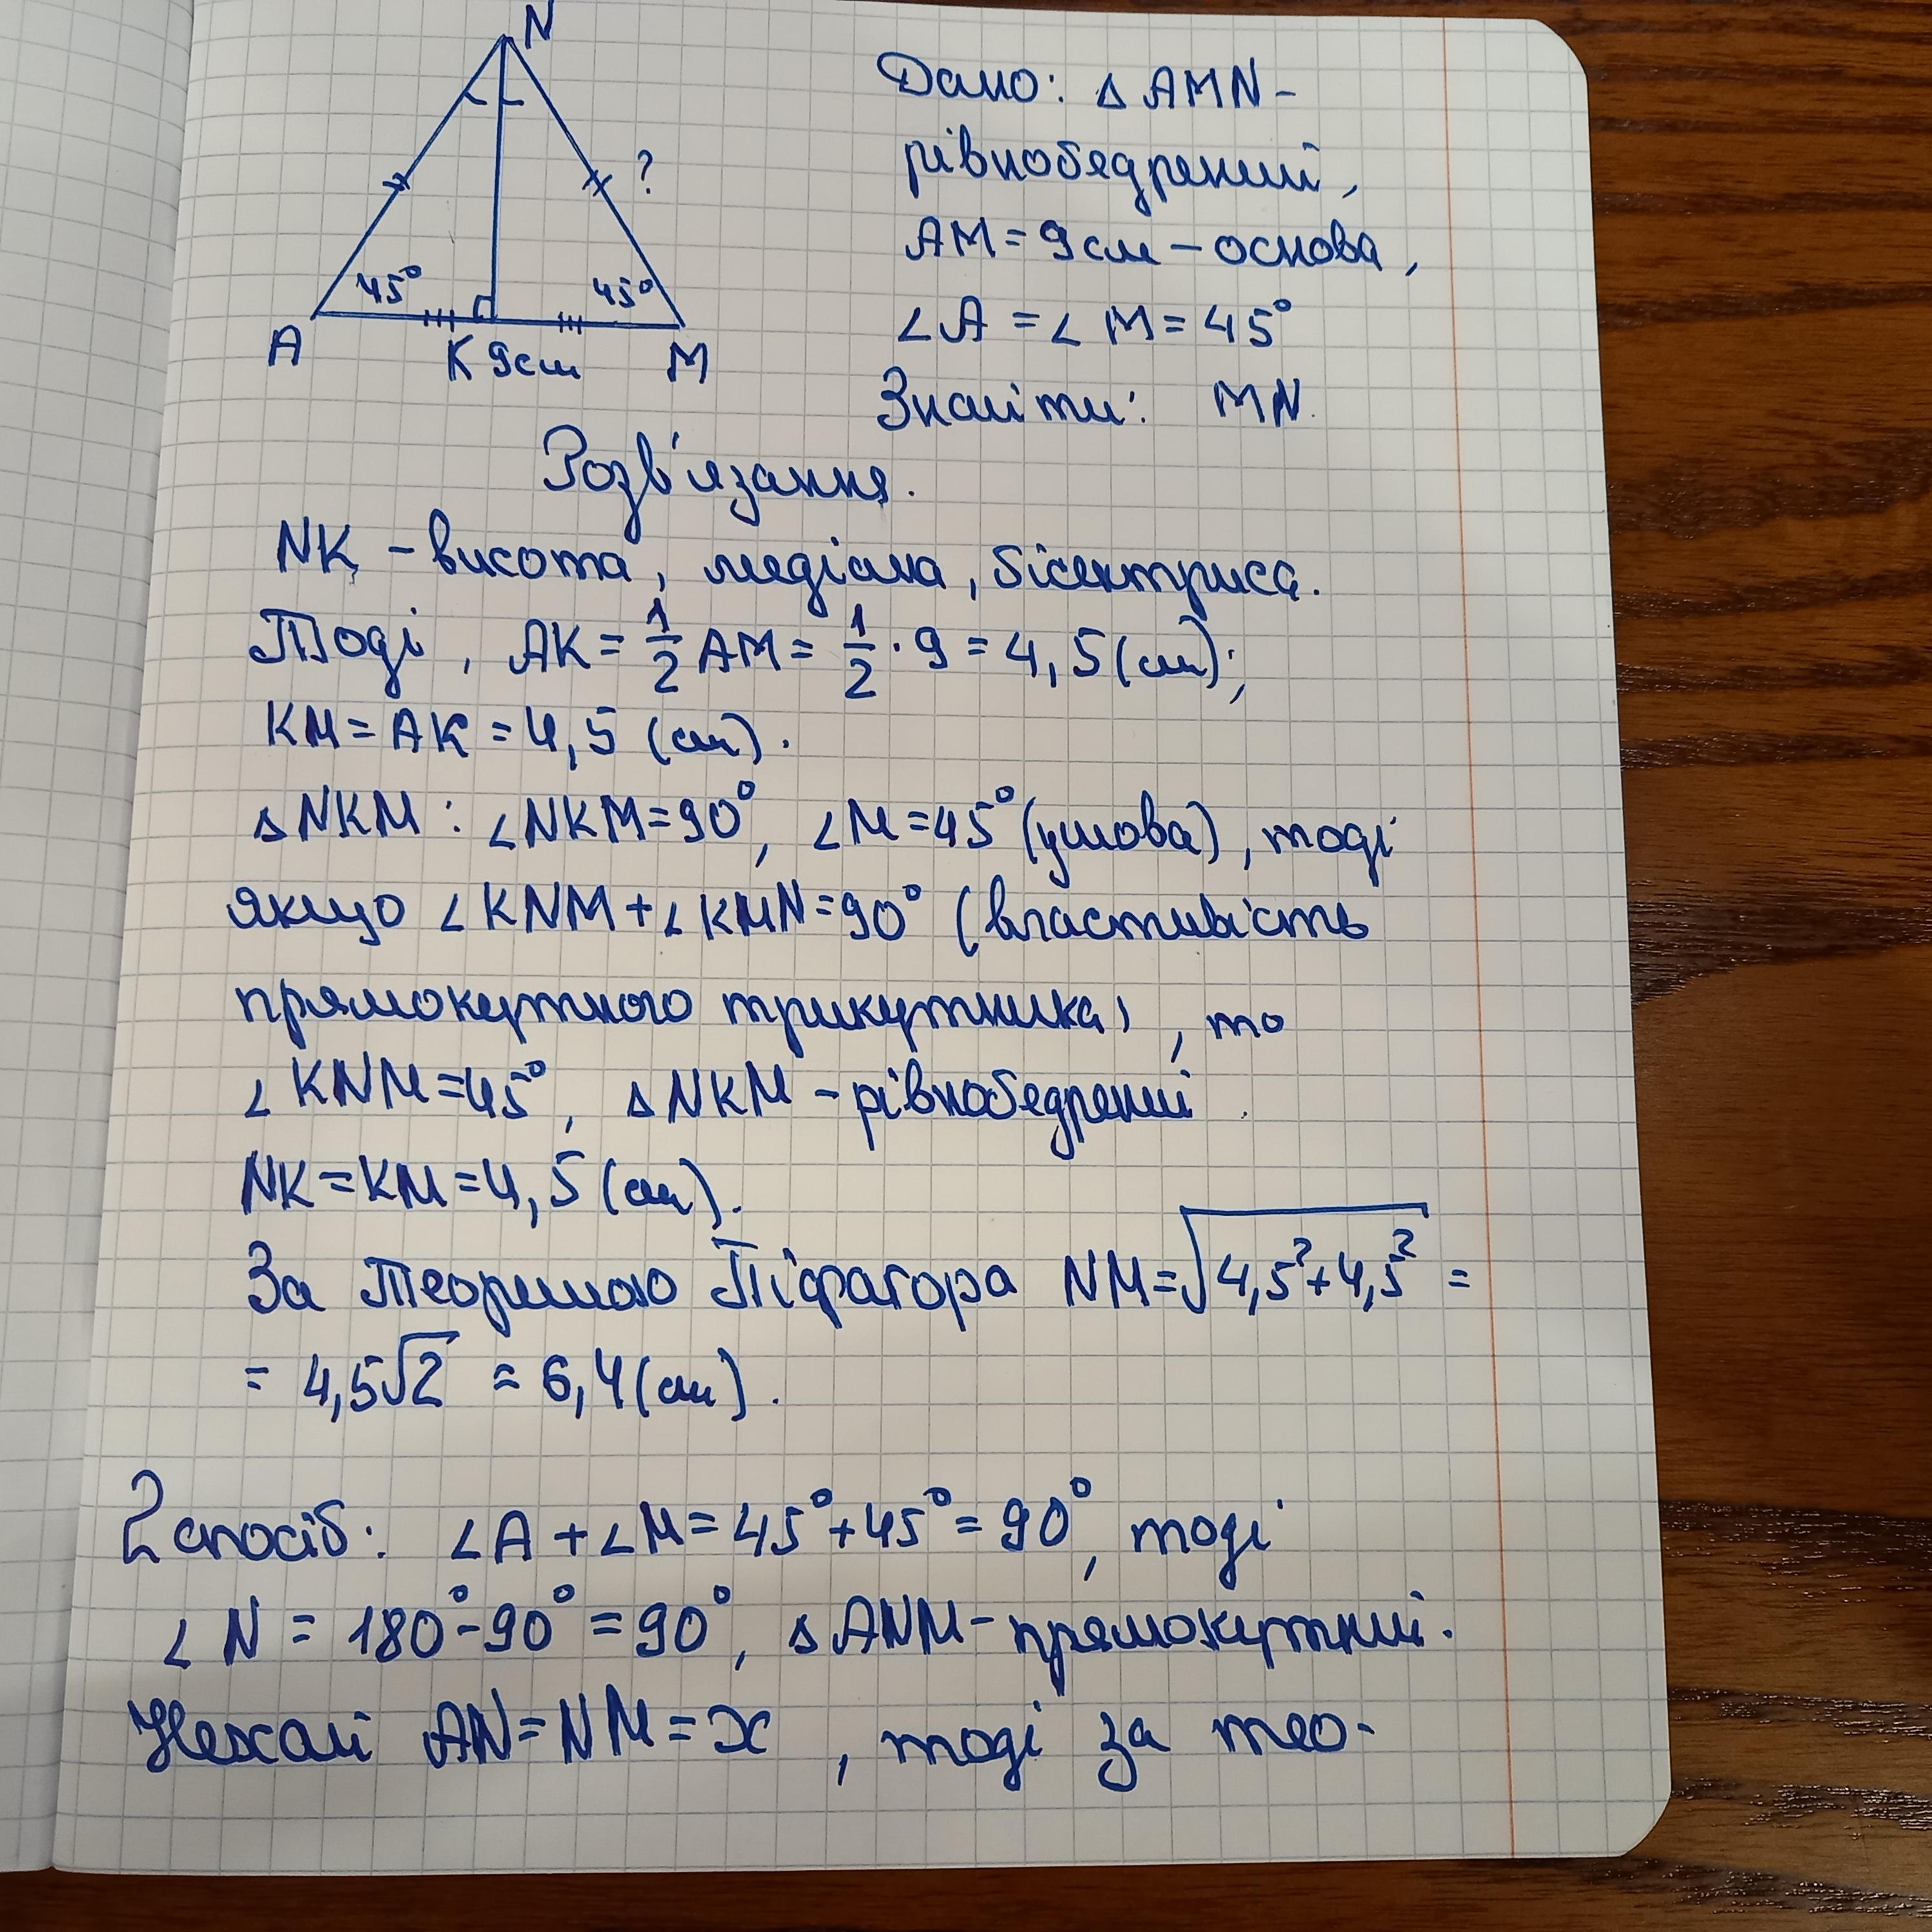 N
?
45°
45°
A
K 9см
M
Дано: △ AMN -
рівнобедрений,
AM = 9 см - основа,
∠A = ∠M = 45°
Знайти: MN.
Розв'язання.
NK - висота, медіана, бісектриса.
Тоді, AK = 1/2 AM = 1/2 · 9 = 4,5 (см);
KM = AK = 4,5 (см).
△ NKM : ∠NKM = 90°, ∠M = 45° (умова), тоді
якщо ∠KNM + ∠KMN = 90° (властивість
прямокутного трикутника), то
∠KNM = 45°, △ NKM - рівнобедрений.
NK = KM = 4,5 (см).
За теоремою Піфагора NM = √(4,5² + 4,5²) =
= 4,5√2 ≈ 6,4 (см).
2 спосіб: ∠A + ∠M = 45° + 45° = 90°, тоді
∠N = 180° - 90° = 90°, △ ANM - прямокутний.
Нехай AN = NM = x, тоді за тео-